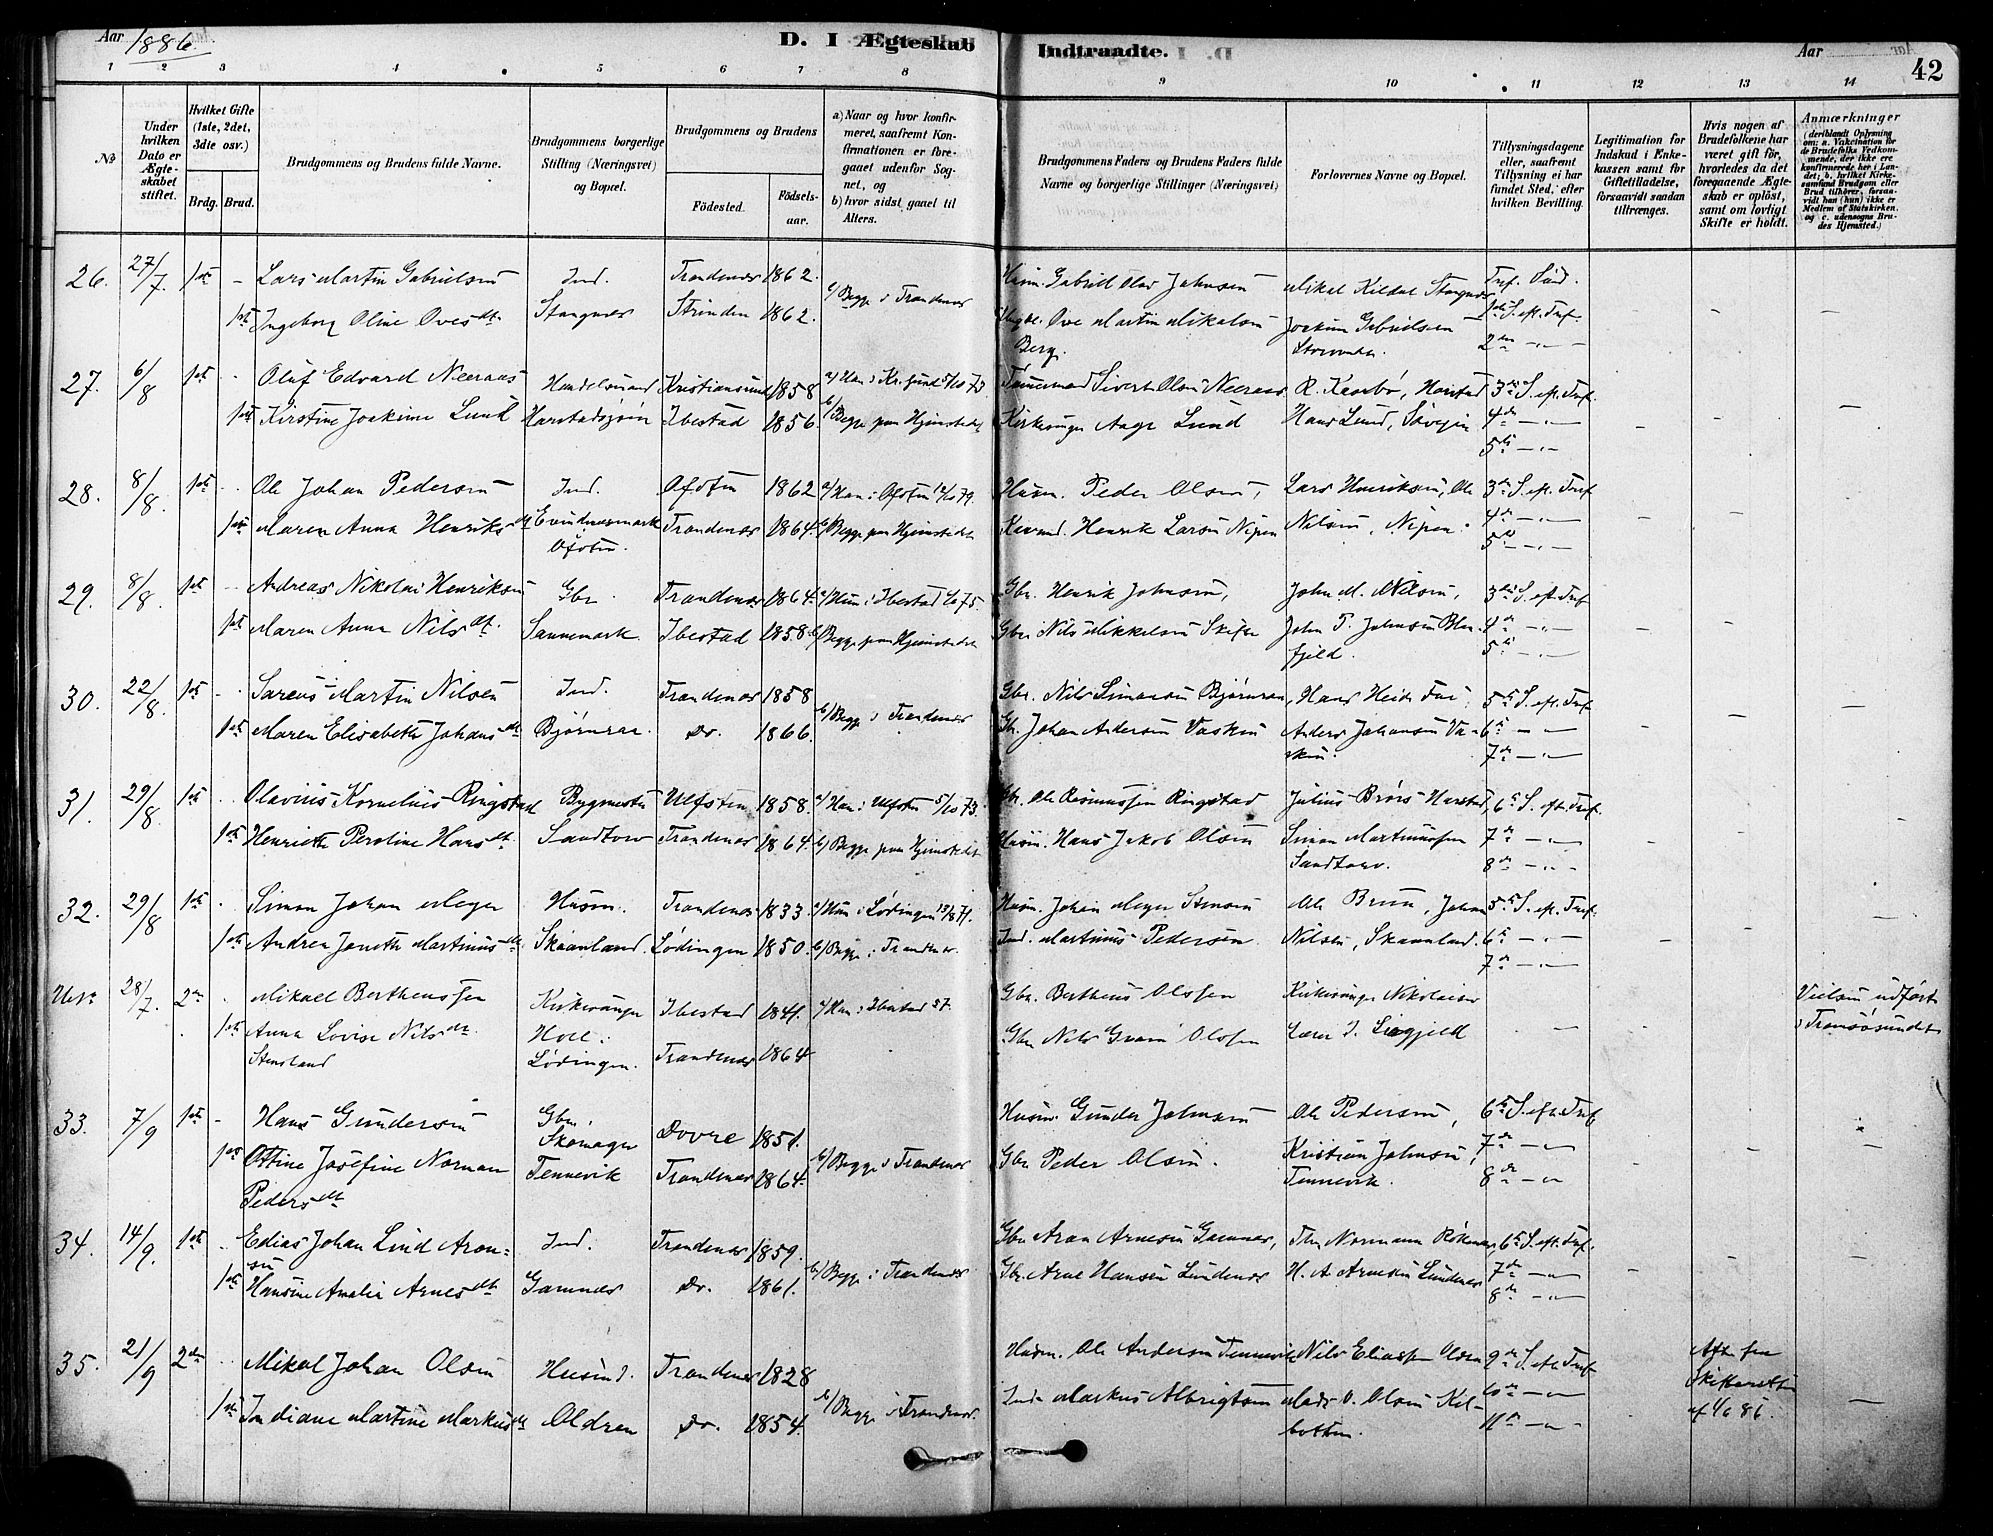 Aar 1886.
D. I Ægteskab Indtraadte.
Aar
42
1 2 3 4 5 6 7 8 9 10 11 12 13 14
No
Under hvilken Dato er Ægteskabet stiftet.
Hvilket Gifte (1ste, 2det, 3die osv.)
Brdg. Brud.
Brudgommens og Brudens fulde Navne.
Brudgommens borgerlige Stilling (Næringsvei) og Bopæl.
Brudgommens og Brudens
Födested. Födselsaar.
a) Naar og hvor konfirmeret, saafremt Konfirmationen er foregaaet udenfor Sognet, og
b) hvor sidst gaaet til Alters.
Brudgommens Faders og Brudens Faders fulde Navne og borgerlige Stillinger (Næringsvei)
Forlovernes Navne og Bopæl.
Tillysningsdagene eller, saafremt Tillysning ei har fundet Sted, efter hvilken Bevilling.
Legitimation for Indskud i Enkekassen samt for Giftetilladelse, forsaavidt saadan tiltrænges.
Hvis nogen af Brudefolkene har været gift før, hvorledes da det foregaaende Ægteskab er oplöst, samt om lovligt Skifte er holdt.
Anmærkninger
(deriblandt Oplysning om: a. Vakcination for de Brudefolks Vedkommende, der ikke ere konfirmerede her i Landet; b. hvilket Kirkesamfund Brudgom eller Brud tilhörer, forsaavidt han (hun) ikke er Medlem af Statskirken, og c. udensogns Brudes Hjemsted.)
26. 27/7. 1ste - Lars Martin Gabrielsen Ind. Trondenæs 1862. b) Begge i Trondenæs Husm. Gabriel Olav Johnsen Mikal Kildal Stangnes
1ste Ingeborg Oline Ovesdt. Stangnes Strinden 1862. Ove Martin Mikalsen Berg. Joakim Gabrielsen 1ste S. eft. Tref.
2den -"-
27. 6/8 1ste - Oluf Edvard Neeraas Handelsmand Kristiansund 1858 a) Han i Kr.sund 5/10 73. Tømmermand Sivert Olsen Neeraas R. Kaarbø, Harstad 3die S. eft. Tref.
1ste Kirstine Joakime Lund Harstadsjøen Ibestad 1856. b) Begge paa Hjemstedet Kirkesanger Aage Lund Hans Lund, 4de -"-
5te -"-
28. 8/8 1ste - Ole Johan Pedersen Ind. Ofoten 1862 a) Han i Ofoten 12/10 79. Husm. Peder Olsen, Lars Henriksen, Ole 3die S. eft. Tref
1ste Maren Anna Henriksdt Evindnesmark Ofoten. Trondenæs 1864. b) Begge paa Hjemstedet Henrik Larsen Nipen Nilsen, Nipen. 4de -"-
5te -"-
29. 8/8. 1ste - Andreas Nikolai Henriksen Gbr. Trondenæs 1864. a) Hun i Ibestad 75. Gbr. Henrik Johnsen, John M. Nilsen, 3die S. eft. Tref
1ste Maren Anna Nilsdt. Sannemark. Ibestad 1858. b) Begge paa Hjemstedet Gbr. Nils Mikkelsen John P. Johnsen Blaafjeld. 4de -"-
5te -"-
30. 22/8. 1ste - Søreus Martin Nilsen Ind. Trondenæs 1858 b) Begge i Trondenæs Gbr. Nils Simonsen Bjørnraa, Hans Heide 5te S. eft. Tref
1ste Maren Elisabeth Johansdt Bjørnraa. Do. 1866. Gbr. Johan Andersen Vasken Anders Johansen Vasken. 6te -"-
7de -"-
31. 29/8. 1ste - Olavius Kornelius Ringstad Bygmester Ulfsten 1858. a) Han i Ulfsten 5/10 73. Gbr. Ole Rasmussen Ringstad Julius Brørs Harstad, 6te S. eft. Tref.
1ste Henriette Peroline Hansdt. Sandtorv Trondenæs 1864. b) Begge paa Hjemstedet Husm. Hans Jakob Olsen Simon Martinussen Sandtorv. 7de -"-
8de -"-
32. 29/8 1ste - Simon Johan Meyer Husm. Trondenæs 1833 a) Hun i Lødingen 13/8 71. Husm. Johan Meyer Stensen Ole Bruun, Johan 5te S. eft. Tref.
1ste Andrea Janette Martinusdt. Skaanland. Lødingen 1850. b) Begge i Trondenæs. Ind. Martinus Pedersen. Nilsen, Skaanland. 6te -"-
7de -"-
28/7. 2den - Mikael Berthensen Kirkesanger Ibestad 1841. a) Han i Ibestad 57. Gbr. Bertheus Olsen Kirkesanger Nikolaisen Vielsen udført
1ste Anna Lovise Nilsdt. Stensland Hoel i Lødingen. Trondenæs 1864. Gbr. Nils Olsen Lærer J. i Tromsøsundet
33. 7/9 1ste - Hans Gundersen Gbr. Skomager Dovre 1851. b) Begge i Trondenæs Husm. Gunder Johnsen Ole Pedersen, 6te S. eft. Tref
1ste Ottine Josefine Norman Pedersdt Tennevik Trondenæs 1864. Gbr. Peder Olsen. Kristian Johnsen, Tennevik. 7de -"-
8de -"-
34. 14/9. 1ste - Edias Johan Lind Aronsen Ind. Trondenæs 1859. b) Begge i Trondenæs Gbr. Aron Arnesen Gamnæs, Normann Röknæs, 6te S. eft. Tref.
1ste Hansine Amalia Arnesdt Gamnæs Do. 1861. Gbr. Arne Hansen Lundenæs H. A. Arnesen Lundenæs 7de -"-
8de -"-
35. 21/9 2den - Mikal Johan Olsen Husind. Trondenæs 1828 b) Begge i Trondenæs Husm. Ole Andersen Tennevik Nils Eliassen 9de S. eft. Tref Att. fra
1ste Indiane Martine Markusdt Aldren Do. 1854. Ind. Markus Albrigtsen Mads O. Olsen Kilbotten. 10de -"- Skifteretten
11te -"- af 86.